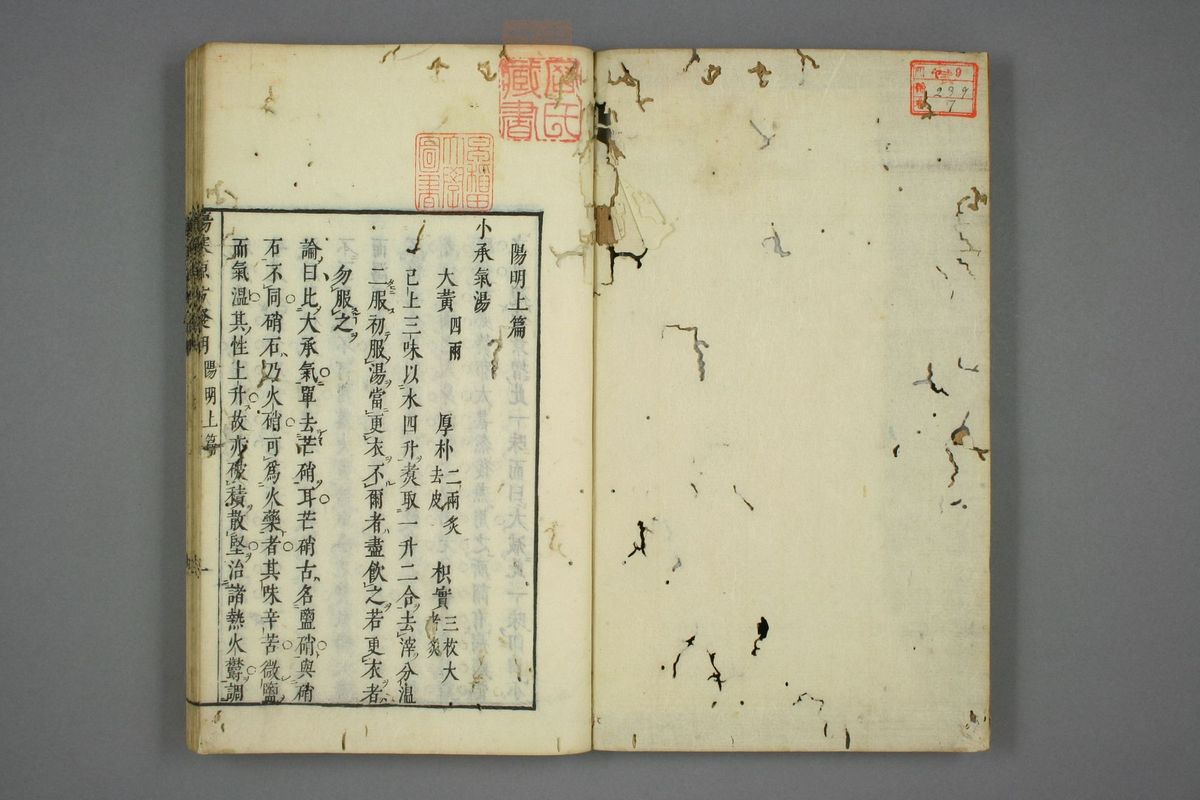 陽明上篇
小承氣湯
大黃四兩　厚朴二兩炙去皮　枳實三枚大者炙
已上三味以水四升煑取一升二合去滓分温
二服初服湯當更衣不爾者盡飲之若更衣者
勿服之
論曰比大承氣單去芒硝耳芒硝古名鹽硝與硝
石不同硝石乃火硝可爲火藥者其味辛苦微鹽
而氣温其性上升故亦破積散堅治諸熱火鬱調
陽明上篇
藏書
圖書
239
7